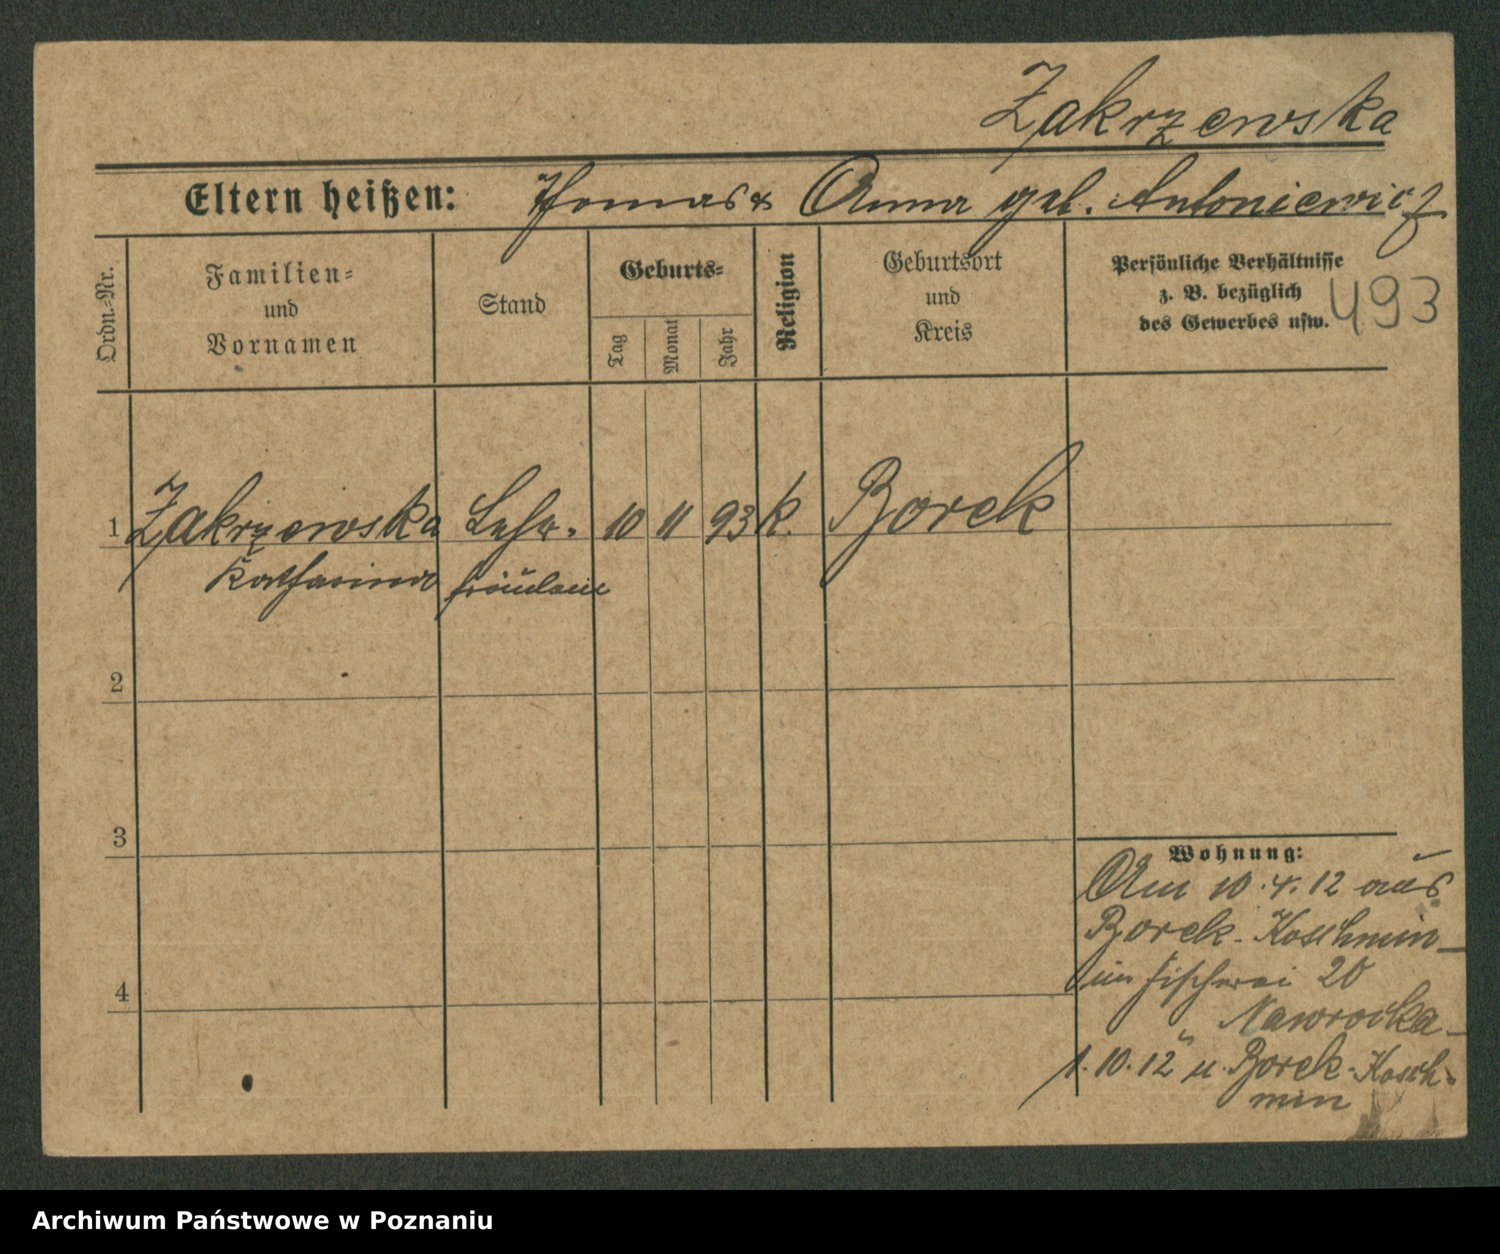 Zakrzewska
Eltern heißen: Thomas & Anna geb. Antoniewicz
Ordn.-Nr.
Familien-
und
Vornamen
Stand
Geburts-
Tag
Monat
Jahr
Religion
Geburtsort
und
Kreis
Persönliche Verhältnisse
z. B. bezüglich
des Gewerbes usw.
493
1 Zakrzewska Lehr- 10 11 93 k. Borek
Katharina fräulein
2
3
4
Wohnung:
Am 10.4.12 aus
Borek-Koschmin
Fischerei 20
Nawrocka
1.10.12 n. Borek-Kosch-
min
Archiwum Państwowe w Poznaniu